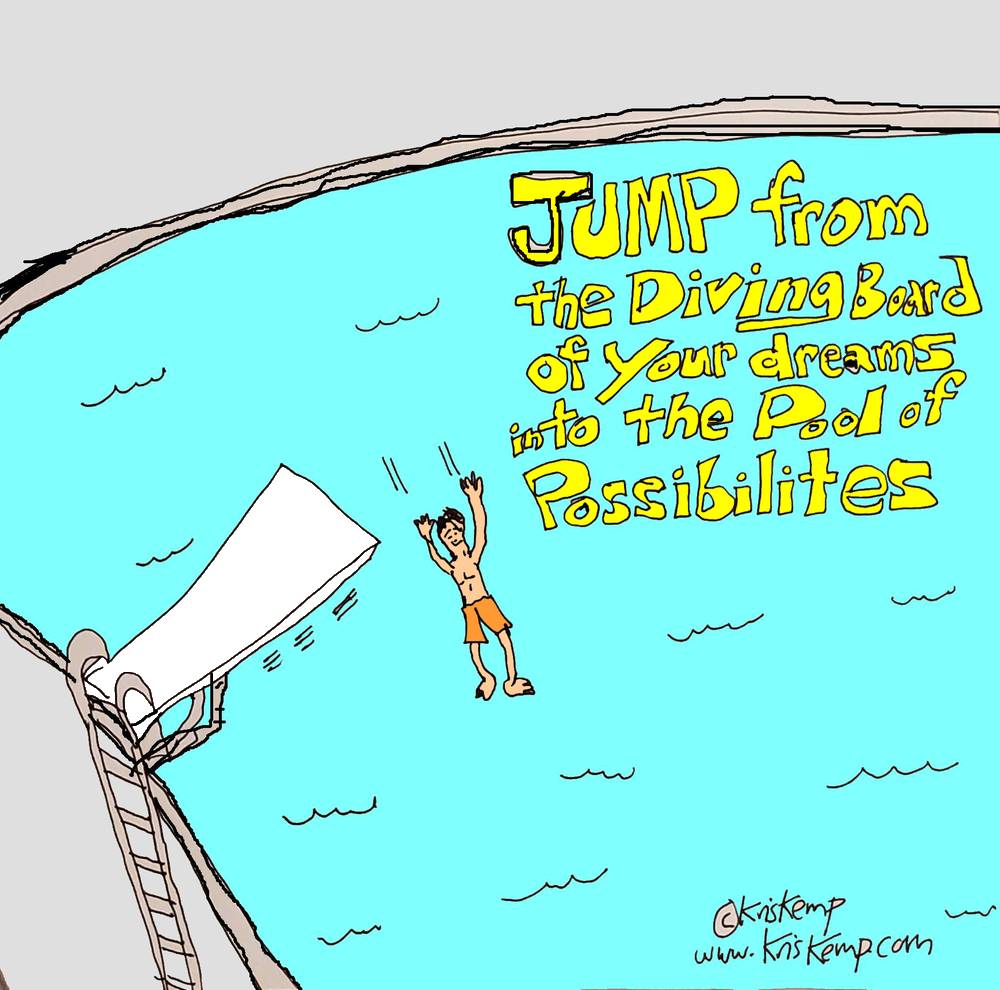 JUMP from
the Diving Board
of your dreams
into the Pool of
Possibilites
©KrisKemp
www.KrisKemp.com